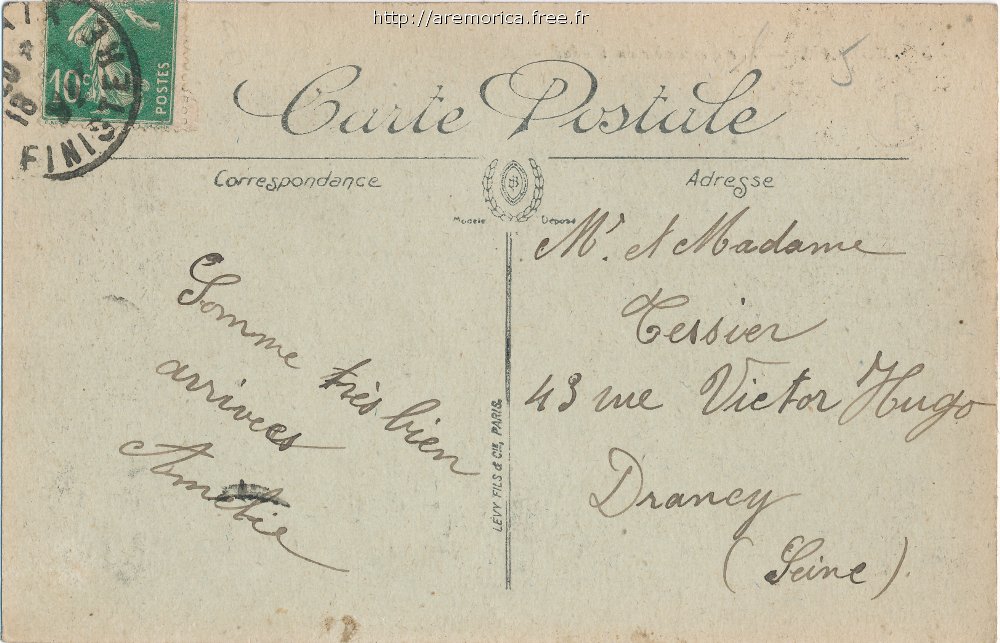 http://aremorica.free.fr
10c
POSTES
FINISTERE
18
5
Carte Postale
Correspondance
Adresse
Modèle Déposé
Somme très bien
arrivées
Amélie
LEVY FILS & Cie, PARIS.
Mr. et Madame
Tessier
43 rue Victor Hugo
Drancy
(Seine).